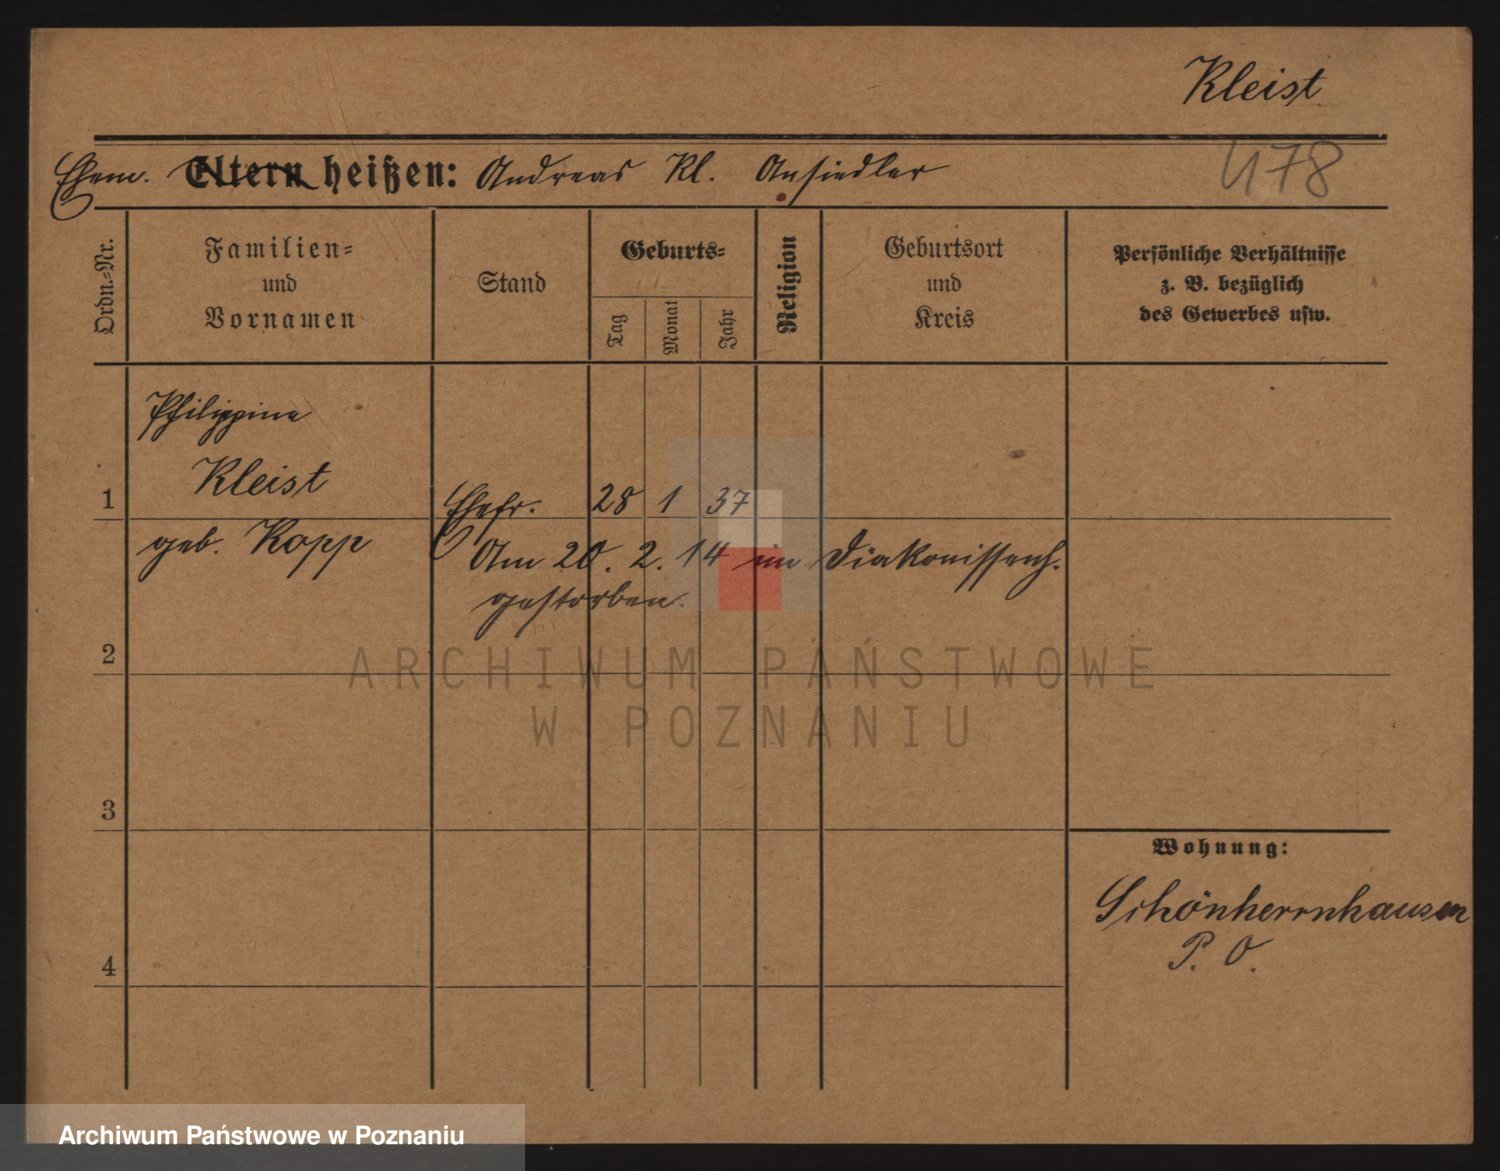 Kleist
Ehem. Eltern heißen: Andreas Kl. Ansiedler
478
Ordn.-Nr.
Familien- und Vornamen
Stand
Geburts-
Tag
Monat
Jahr
Religion
Geburtsort und Kreis
Persönliche Verhältnisse
z. B. bezüglich
des Gewerbes usw.
Philippine
Kleist
1 Ehefr. 28 1 37
geb. Kopp
Am 20. 2. 14 im Diakonissenh.
gestorben.
2
ARCHIWUM PAŃSTWOWE
W POZNANIU
3
Wohnung:
Schönherrnhausen
P. O.
4
Archiwum Państwowe w Poznaniu